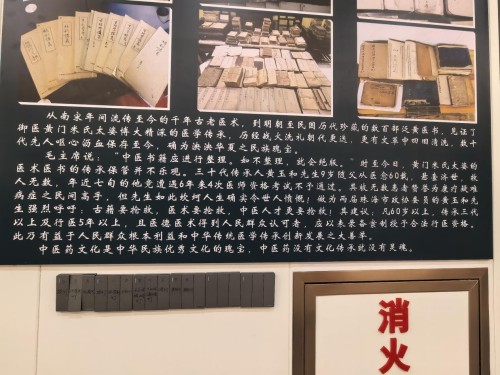 从南宋年间流传至今的千年古老医术，到明朝至民国历代珍藏的数百部泛黄医书，见证了
御医黄门朱氏太婆博大精深的医学传承，历经战火洗礼朝代更迭，更有文革中四旧清洗，数十
代先人呕心沥血保存至今，确为泱泱华夏之民族瑰宝。
毛主席说："中医书籍应进行整理。如不整理，就会绝版。"时至今日，黄门朱氏太婆的
医术医书的传承保管并不乐观。三十代传承人黄玉和先生9岁随父从医愈60载，慈善济世，救
人无数，年近七旬的他竟遭遇6年来4次医师资格考试不予通过。其被无数患者誉为康疗疑难
病症之民间高手，但先生如此坎坷人生确实令世人惜慨，做为两届珠海市政协委员的黄玉和先
生强烈呼吁：古籍要抢救，医术要抢救，中医人才更要抢救！其建议：凡60岁以上，传承三代
以上及行医5年以上，且医德医术得到人民群众认可者，应以荣誉制授予合法行医资格。
此乃有益于人民群众根本利益和中华传统医学传承创新发展之大善举。
中医药文化是中华民族优秀文化的瑰宝，中医药没有文化传承就没有灵魂。
消
火